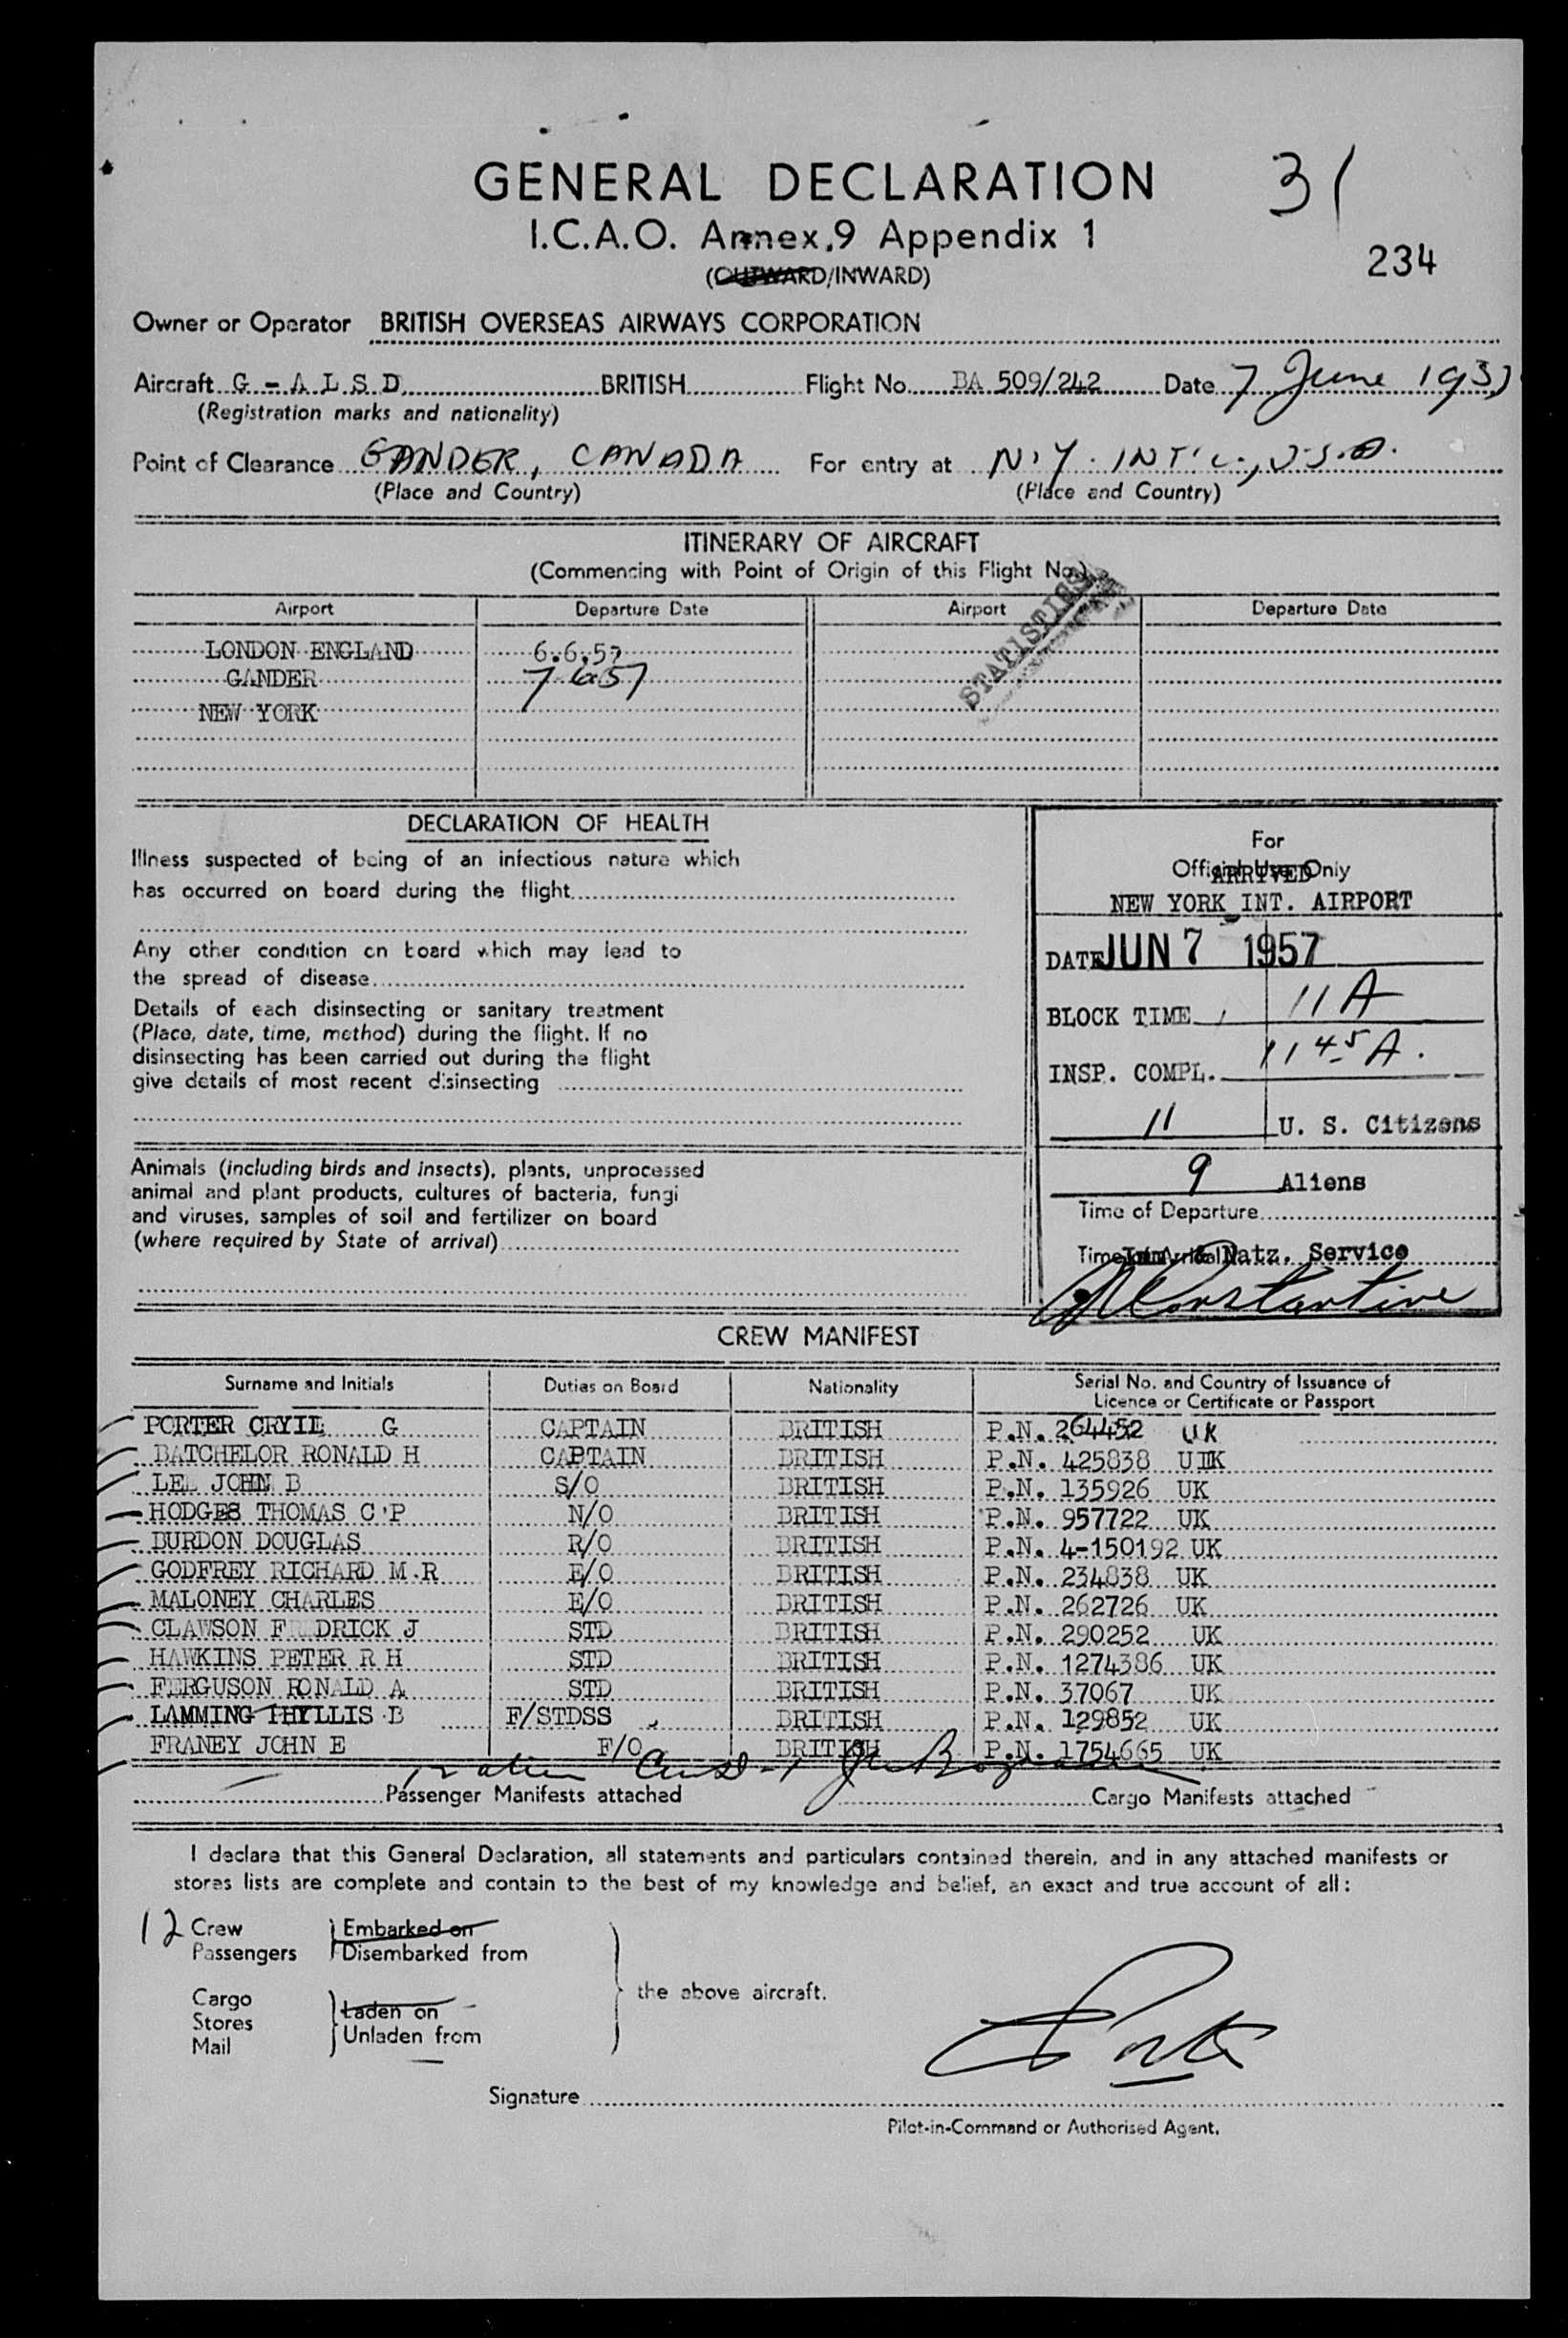 GENERAL DECLARATION
31
I.C.A.O. Annex.9 Appendix 1
(OUTWARD/INWARD)
234
Owner or Operator BRITISH OVERSEAS AIRWAYS CORPORATION
Aircraft G - A L S D BRITISH Flight No. BA 509/242 Date 7 June 1957
(Registration marks and nationality)
Point of Clearance GANDER, CANADA For entry at N.Y. INT'L., U.S.A.
(Place and Country) (Place and Country)
ITINERARY OF AIRCRAFT
(Commencing with Point of Origin of this Flight No.)
STATISTICS
Airport Departure Date Airport Departure Date
LONDON ENGLAND 6.6.57
GANDER 7.6.57
NEW YORK
DECLARATION OF HEALTH
Illness suspected of being of an infectious nature which
has occurred on board during the flight
Any other condition on board which may lead to
the spread of disease
Details of each disinsecting or sanitary treatment
(Place, date, time, method) during the flight. If no
disinsecting has been carried out during the flight
give details of most recent disinsecting
Animals (including birds and insects), plants, unprocessed
animal and plant products, cultures of bacteria, fungi
and viruses, samples of soil and fertilizer on board
(where required by State of arrival)
For
Official Use Only
ARRIVED
NEW YORK INT. AIRPORT
DATE JUN 7 1957
BLOCK TIME 11 A
INSP. COMPL. 11 45 A.
11 U. S. Citizens
9 Aliens
Time of Departure
Time of Arrival
Imm. & Natz. Service
Constantine
CREW MANIFEST
Surname and Initials Duties on Board Nationality Serial No. and Country of Issuance of
Licence or Certificate or Passport
PORTER CRYIL G CAPTAIN BRITISH P.N. 264452 UK
BATCHELOR RONALD H CAPTAIN BRITISH P.N. 425838 UK
LEE JOHN B S/O BRITISH P.N. 135926 UK
HODGES THOMAS C P N/O BRITISH P.N. 957722 UK
BURDON DOUGLAS R/O BRITISH P.N. 4-150192 UK
GODFREY RICHARD M.R E/O BRITISH P.N. 234838 UK
MALONEY CHARLES E/O BRITISH P.N. 262726 UK
CLAWSON FREDRICK J STD BRITISH P.N. 290252 UK
HAWKINS PETER R H STD BRITISH P.N. 1274386 UK
FERGUSON RONALD A STD BRITISH P.N. 37067 UK
LAMMING PHYLLIS B F/STDSS BRITISH P.N. 129852 UK
FRANEY JOHN E F/O BRITISH P.N. 1754665 UK
Passenger Manifests attached Cargo Manifests attached
I declare that this General Declaration, all statements and particulars contained therein, and in any attached manifests or
stores lists are complete and contain to the best of my knowledge and belief, an exact and true account of all:
12 Crew Embarked on
Passengers Disembarked from
the above aircraft.
Cargo Laden on
Stores
Mail Unladen from
Signature
Pilot-in-Command or Authorised Agent.